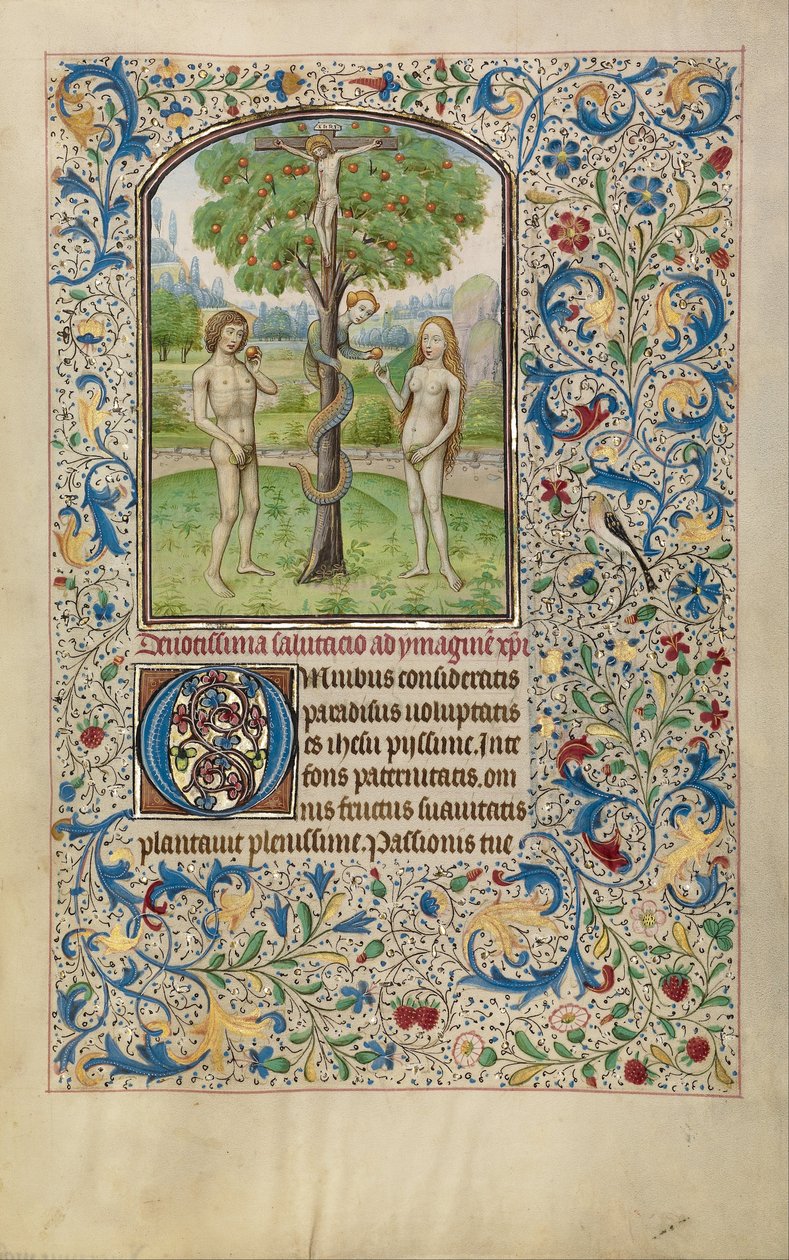 INRI
Deuotissima salutacio ad ymaginē xp̄i
OMnibus consideratis
paradisus uoluptatis
es ihesu pijssime. Inte
fons paternitatis. om
nis fructus suauitatis
plantauit plenissime. Passionis tue